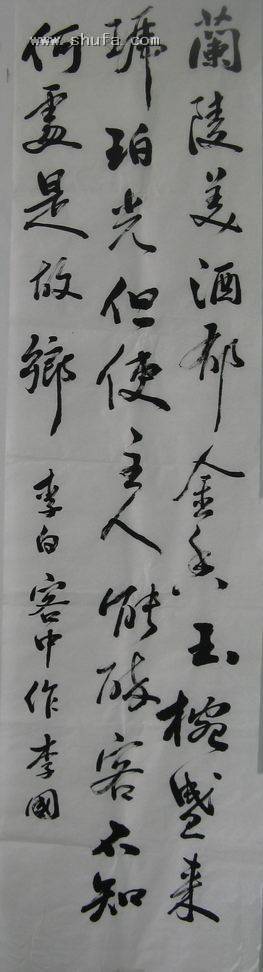 www.shufa.com
蘭陵美酒郁金香玉椀盛来
琥珀光但使主人能醉客不知
何處是故鄉
李白客中作李國